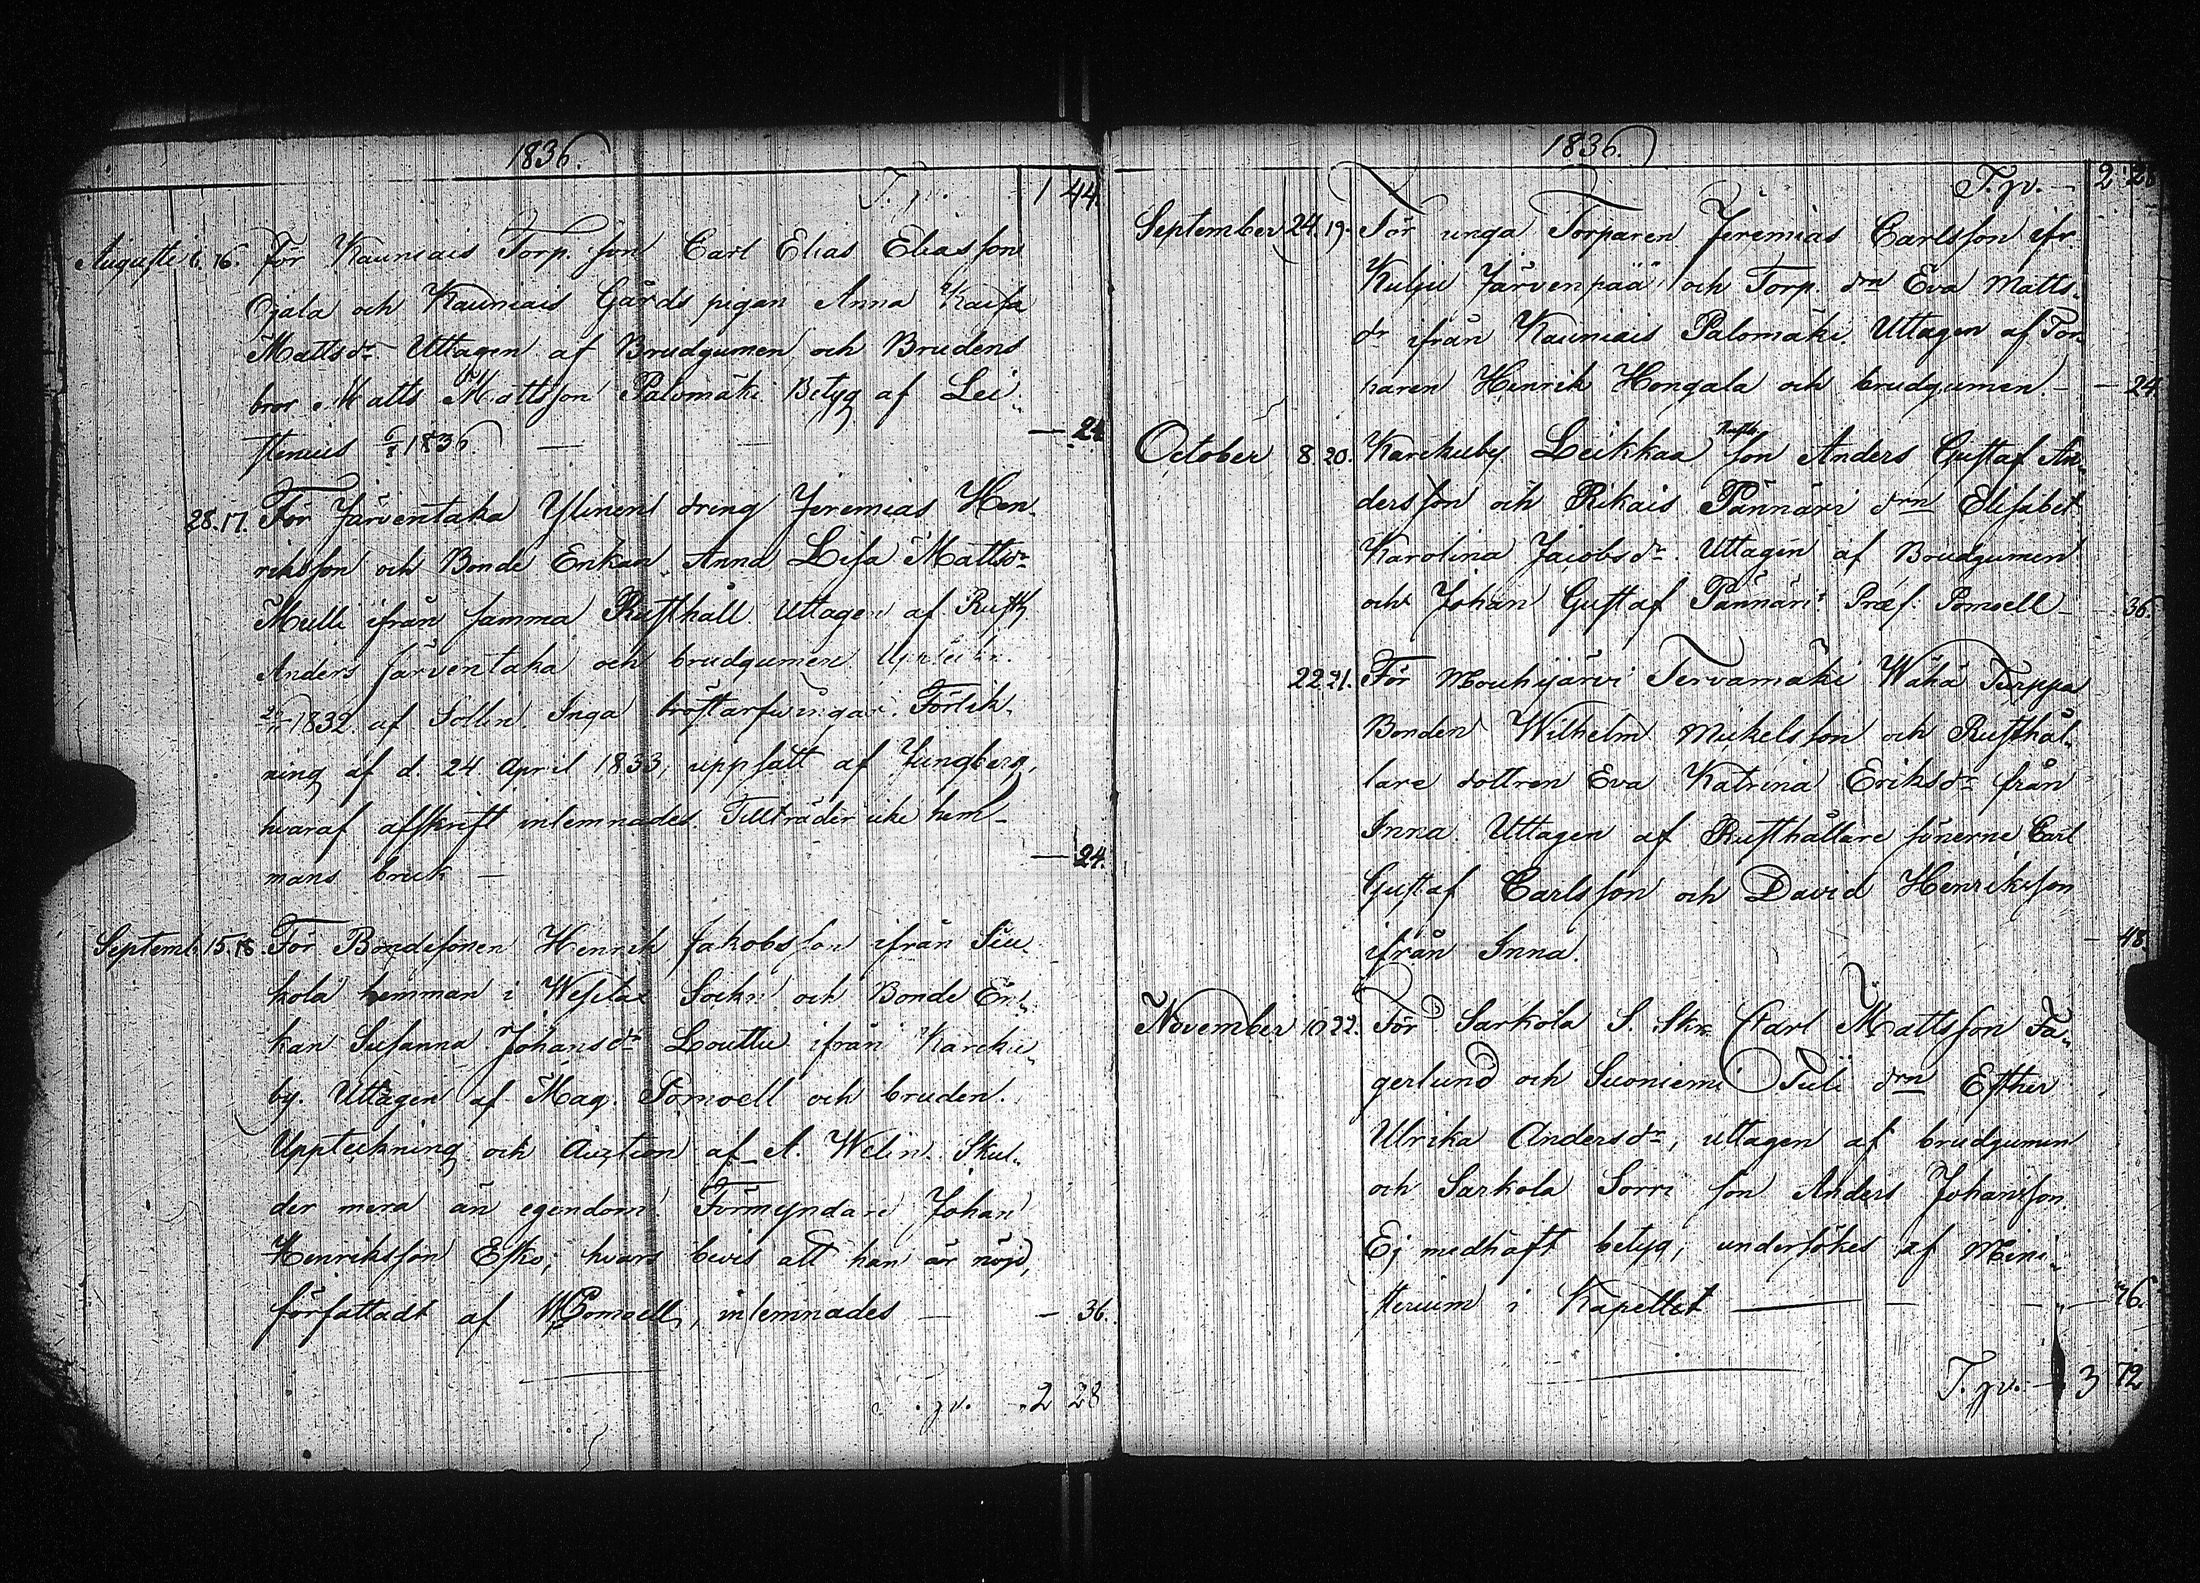 1836.
T. gv. 1 44.
Augusti 6. 16. För Kauniais Torp. son Carl Elias Eliasson
Ojala och Kauniais Gårds pigan Anna Kaisa
Mattsdr Uttagen af Brudgumen och Brudens
bror Matts Mattsson Palomäki Betyg af Lei-
stenius 1836. — — 24
28. 17. För Järventaka Ylinen dreng Jeremias Hen-
riksson och Bonde Enkan Anna Lisa Mattsdr
Mulli ifrån samma Rusthåll. Uttagen af Rusth.
Anders Järventaka och brudgumen
1832 af Sollin. Inga bröstarfvingar. Förlik-
ning af d. 24 April 1833, uppsatt af Ljungberg,
hvaraf afskrift inlemnades. Tillträder icke hem-
mans bruk — — 24.
Septemb. 15. 18. För Bondesonen Henrik Jakobsson ifrån Suk-
kola hemman i Wesilax Sockn och Bonde En-
kan Susanna Johansdr Louttu ifrån Karcku-
by. Uttagen af Mag. Pomoell och bruden.
Uppteckning och Auction af A. Welin. Skul-
der mera än egendom. Förmyndare Johan
Henriksson Esko; hvars bevis att han är nöjd,
författadt af Pomoell, inlemnades — — 36.
T. gv. 2 28
1836.
T. gv. — 2 28
September 24. 19. För unga Torparen Jeremias Carlsson ifr
Kulju Järvenpää och Torp. drn Eva Matts-
dr ifrån Kauniais Palomäki. Uttagen af Tor-
paren Henrik Hongala och brudgumen. — — 24.
October 8. 20. Karckuby Leikkaa Rusth. son Anders Gustaf An-
dersson och Rikais Pännäri drn Elisabet
Karolina Jacobsdr. Uttagen af Brudgumen
och Johan Gustaf Pännäri. Præs. Pomoell — 36.
22. 21. För Mouhijärvi Tervamäki Wähä Turppa
Bonden Wilhelm Mickelsson och Rusthål-
lare dottren Eva Katrina Eriksdr från
Inna. Uttagen af Rusthållare sönerne Carl
Gustaf Carlsson och David Henriksson
ifrån Inna. — 48.
November 10. 22. För Sarkola S. Skr. Carl Mattsson Fa-
gerlund och Suoniemi Tuli drn Esther
Ulrika Andersdr, uttagen af brudgumen
och Sarkola Sorri son Anders Johansson.
Ej medhaft betyg; undersökes af Mini-
sterium i Kapellet — — 36.
T. gv. — 3 72